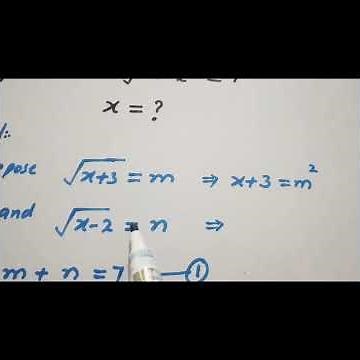 x = ?
√x+3 = m ⇒ x+3 = m²
and √x-2 = n ⇒
m + n = 7 — ①